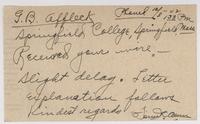 G. B. Affleck
Springfield College, Springfield Mass
Received your wire —
Slight delay. Letter
explanation follows
Kindest regards